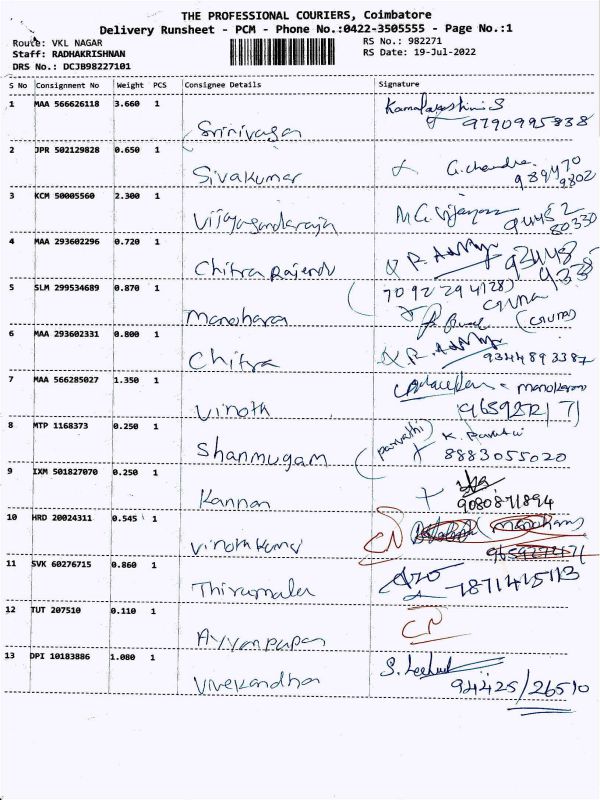 THE PROFESSIONAL COURIERS, Coimbatore
Delivery Runsheet - PCM - Phone No.:0422-3505555 - Page No.:1
Route: VKL NAGAR RS No.: 982271
Staff: RADHAKRISHNAN RS Date: 19-Jul-2022
DRS No.: DCJB98227101
S No Consignment No Weight PCS Consignee Details Signature
1 MAA 566626118 3.660 1
Srinivasan 9790995838
2 JPR 502129828 0.650 1
Sivakumar G. Chandra 989470
9802
3 KCM 50005560 2.300 1
80330
4 MAA 293602296 0.720 1
Chitra Rajendr
5 SLM 299534689 0.870 1
7092294128)
Manohara
6 MAA 293602331 0.800 1
Chitra 9344893387
7 MAA 566285027 1.350 1
Vinoth 9659272171
8 MTP 1168373 0.250 1
(parvathi)
Shanmugam 8883055020
9 IXM 501827070 0.250 1
Kannan 9080871894
10 HRD 20024311 0.545 1
Vinothkumar CN
11 SVK 60276715 0.860 1
Thirumalai
12 TUT 207510 0.110 1
Ayyanpapan CN
13 DPI 10183886 1.080 1
Vivekandha 94425/26510